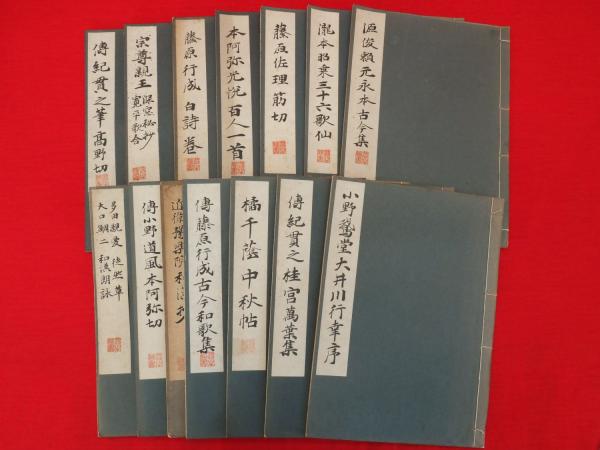 源俊頼元永本古今集
瀧本昭乗三十六歌仙
藤原佐理筋切
本阿弥光悦百人一首
藤原行成白詩巻
宗尊親王
深窓秘抄
寛平歌合
傳紀貫之筆高野切
小野鵞堂大井川行幸序
傳紀貫之桂宮萬葉集
橘千蔭中秋帖
傳藤原行成古今和歌集
近衛豫楽院和漢抄
傳小野道風本阿弥切
多田親愛 徒然草
大口鯛二 和漢朗詠